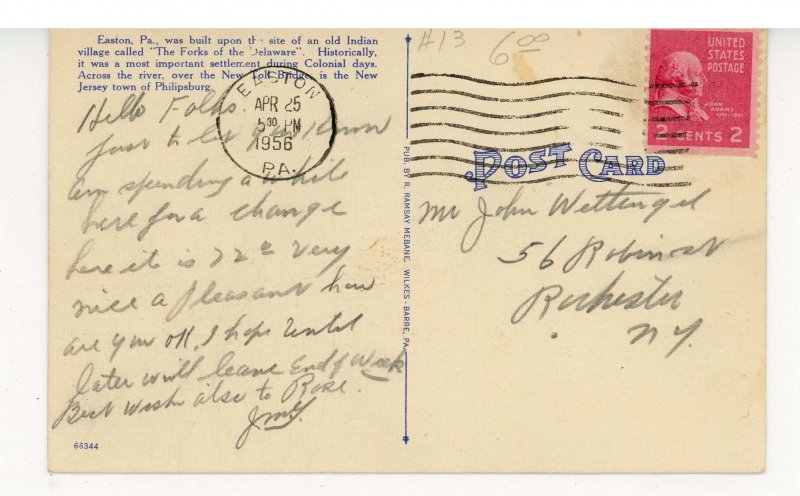 Easton, Pa., was built upon the site of an old Indian
village called "The Forks of the Delaware". Historically,
it was a most important settlement during Colonial days.
Across the river, over the New Toll Bridge, is the New
Jersey town of Philipsburg.
EASTON
APR 25
5 30 PM
1956
PA.
Hello Folks
Just to let you know
am spending a while
here for a change
here it is 72° very
nice & pleasant how
are you OK, I hope until
later will leave End of Week
Best Wish also to Rose.
66344
PUB. BY R. RAMSAY MEBANE, WILKES-BARRE, PA.
#13
6 00
UNITED
STATES
POSTAGE
JOHN
ADAMS
2 CENTS 2
POST CARD
Mr John Wettengel
56 Robin st
Rochester
N.Y.